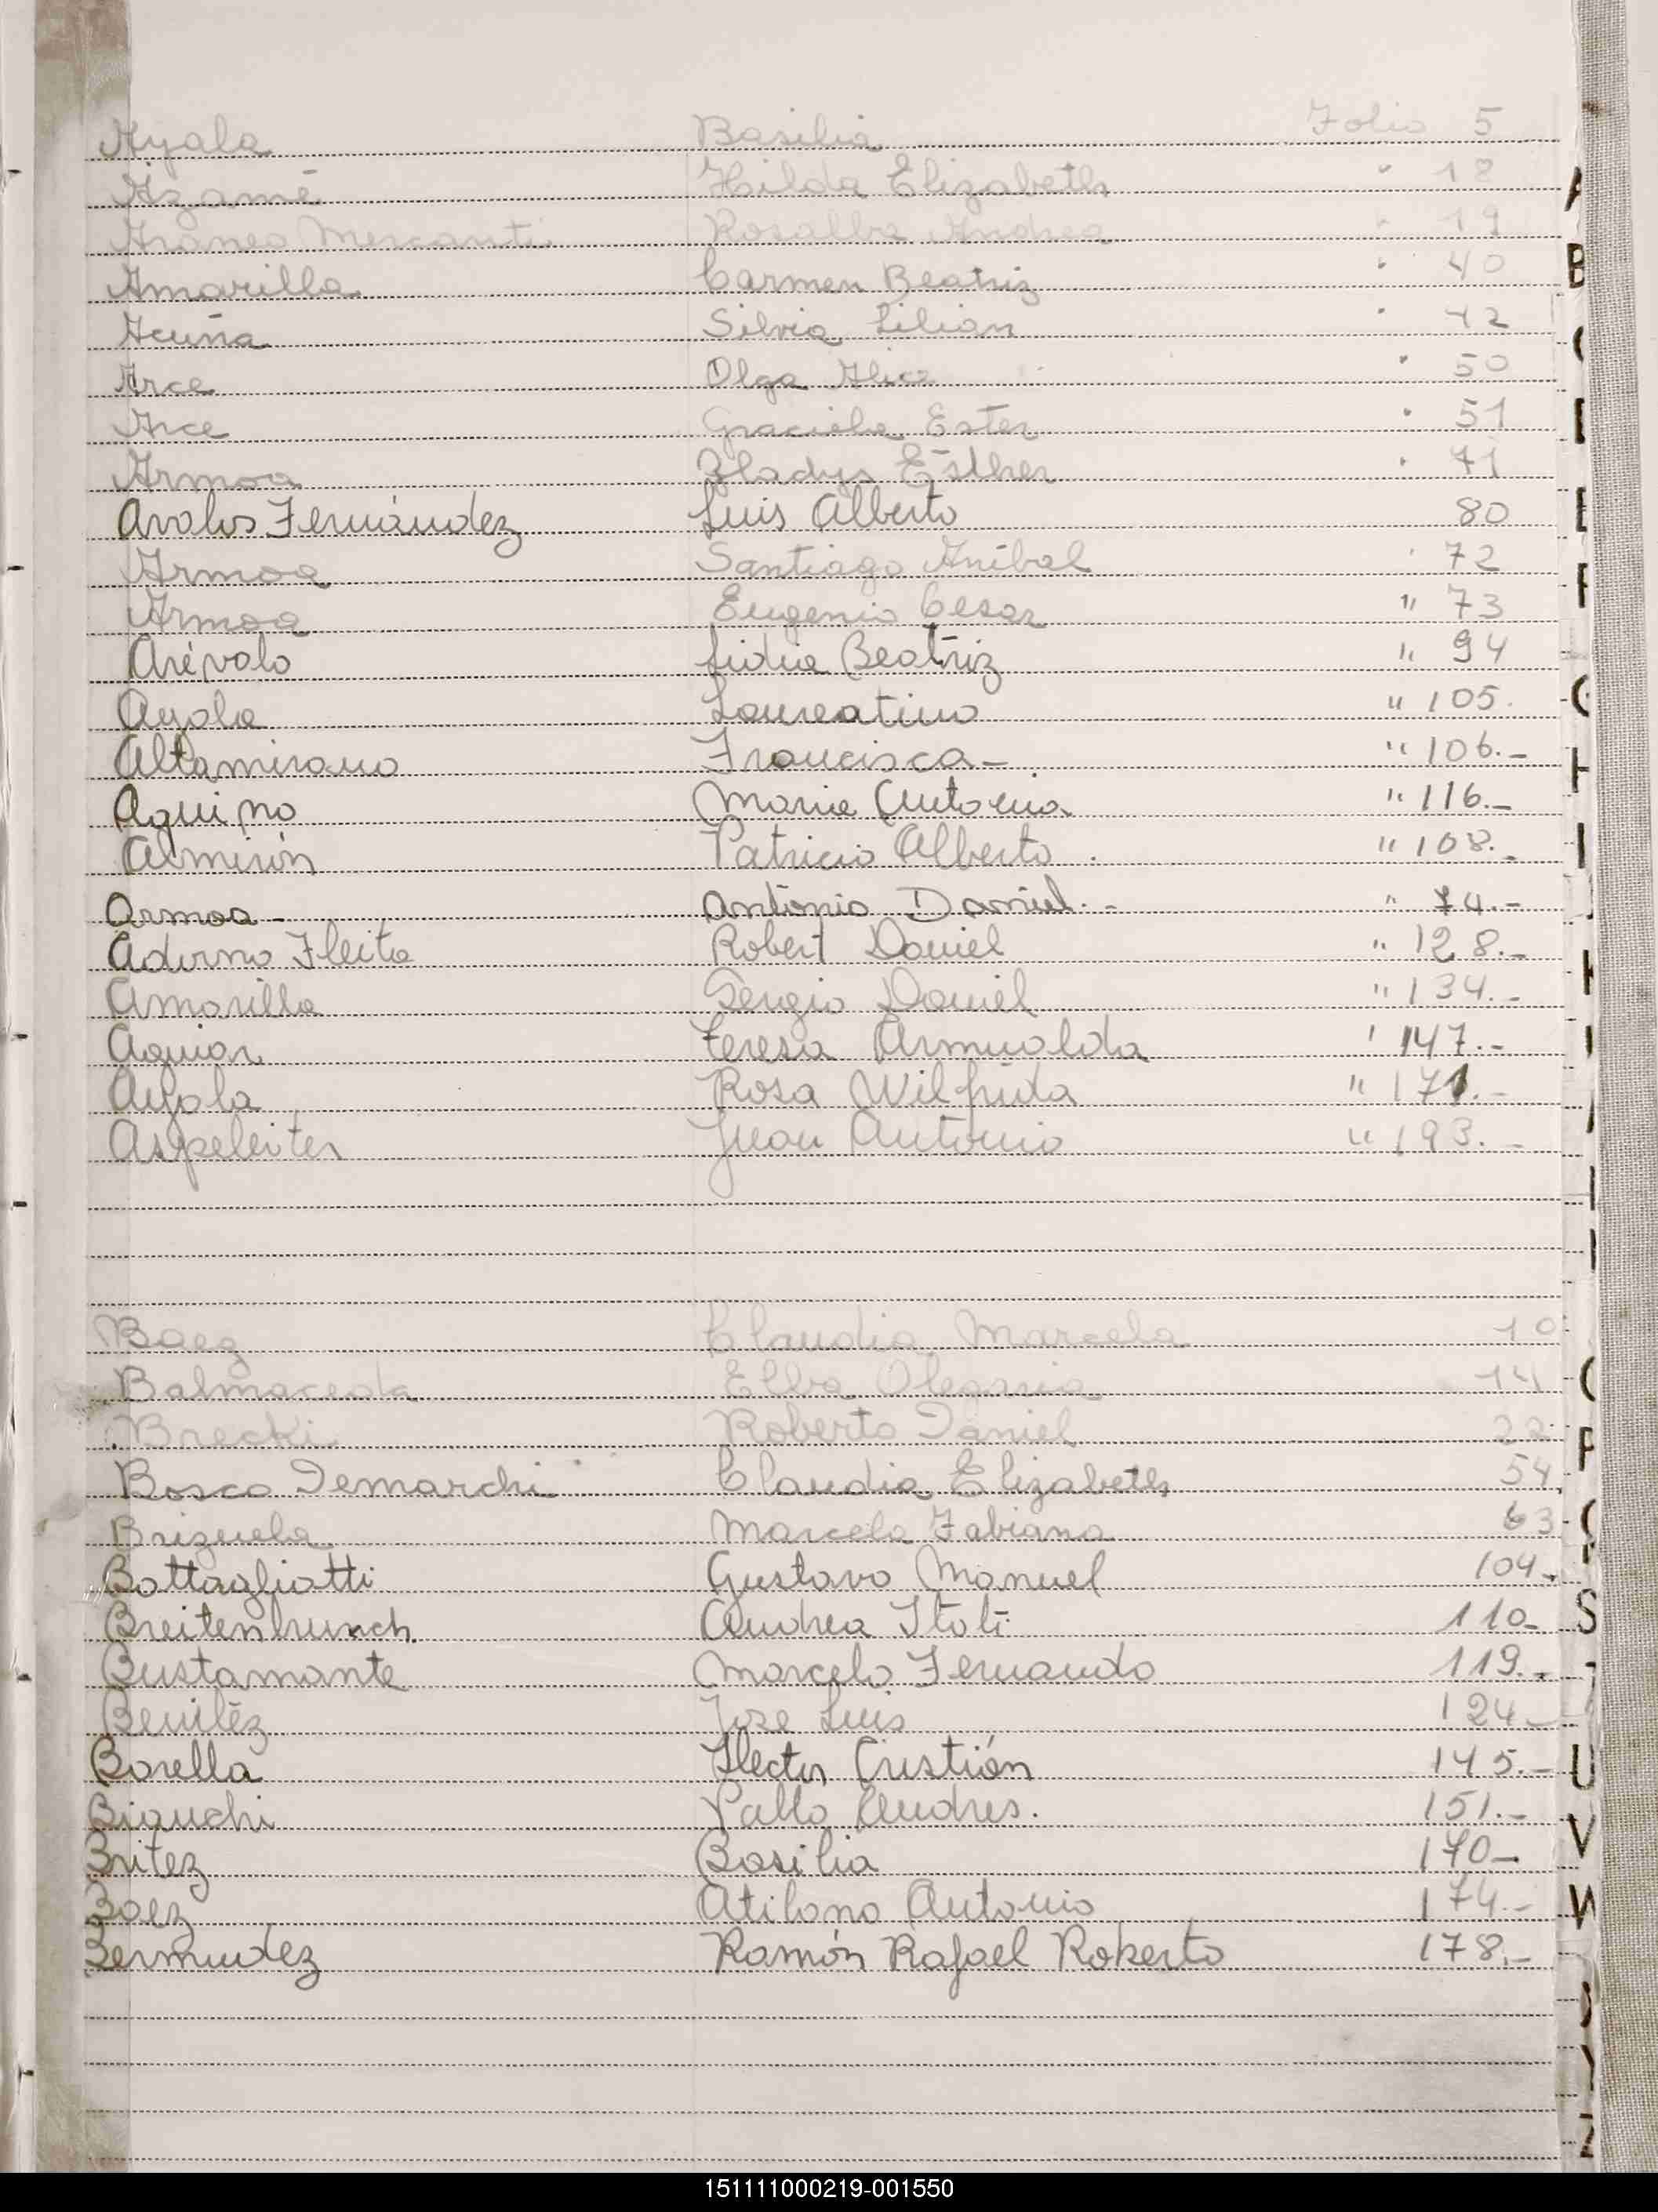 Ayala Basilia Folio 5
Azamé Hilda Elizabeth " 18
Araneo Mercanti Rosalba Andrea " 19
Amarilla Carmen Beatriz " 40
Acuña Silvia Lilian " 42
Arce Olga Alice " 50
Arce Graciela Ester " 51
Armoa Gladys Esther " 71
Avalos Fernández Luis Alberto 80
Armoa Santiago Aníbal " 72
Armoa Eugenio Cesar " 73
Arévalo Lidia Beatriz " 94
Ayala Laureatino " 105.
Altamirano Francisca - " 106.-
Aquino Maria Antonia " 116.-
Almirón Patricio Alberto . " 108.-
Armoa - Antonio Daniel.- " 74.-
Adorno Fleita Robert Daniel " 128.-
Amarilla Sergio Daniel " 134.-
Aguiar Teresa Armualda " 147.-
Ayala Rosa Wilfrida " 171.-
Aspeleiter Juan Antonio " 193.-
Baez Claudia Marcela 10
Balmaceda Elba Olegaria 14
Brecki Roberto Daniel 22
Bosco Demarchi Claudia Elizabeth 54
Brizuela Marcela Fabiana 63
Bottagliotti Gustavo Manuel 104.-
Breitenbruch. Andrea Itatí 110-
Bustamante Marcelo Fernando 119.-
Benitéz Jose Luis 124-
Borella Hector Cristián 145.-
Bianchi Pablo Andres. 151.-
Britez Basilia 170-
Baez Atilano Antonio 174.-
Bermudez Ramón Rafael Roberto 178.-
A
B
S
U
V
W
Y
Z
151111000219-001550